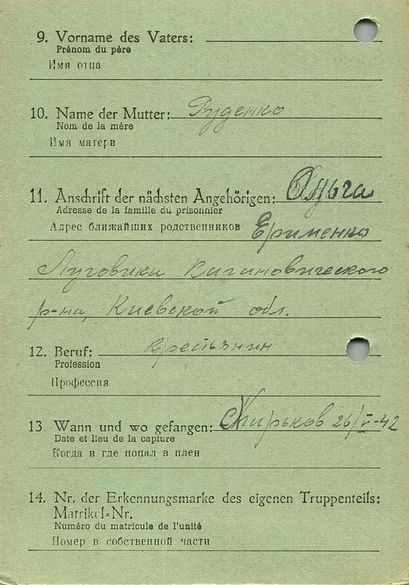 9. Vorname des Vaters:
Prénom du père
Имя отца
10. Name der Mutter: Руденко
Nom de la mère
Имя матери
11. Anschrift der nächsten Angehörigen: Ольга
Adresse de la famille du prisonnier
Адрес ближайших родственников Ерименко
Луговики Кагановического
р-на, Киевской обл.
12. Beruf: крестьянин
Profession
Профессия
13. Wann und wo gefangen: Харьков 26/V-42
Date et lieu de la capture
Когда и где попал в плен
14. Nr. der Erkennungsmarke des eigenen Truppenteils:
Matrikel-Nr.
Numéro du matricule de l'unité
Номер в собственной части